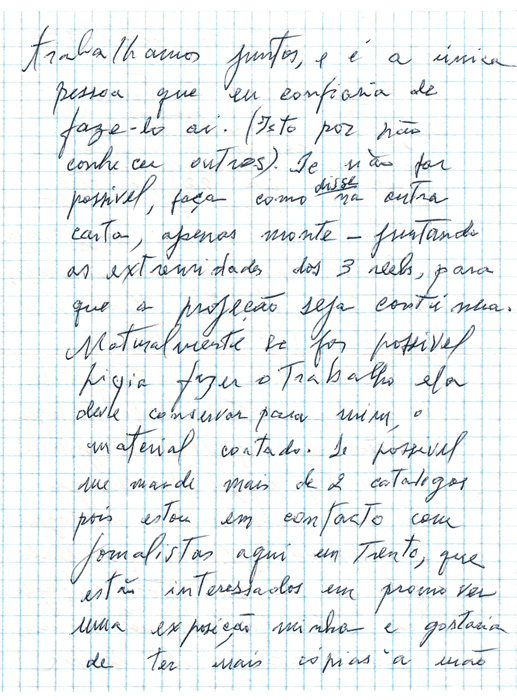 trabalhamos juntos, e é a única
pessoa que eu confiaria de
faze-lo aí. (Isto por não
conhecer outros). Se não for
possível, faça como disse na outra
carta, apenas monte - juntando
as extremidades dos 3 reels, para
que a projeção seja contínua.
Naturalmente se for possível
Ligia fazer o trabalho ela
deve conservar para mim, o
material cortado. Se possível
me mande mais de 2 catalogos
pois estou em contacto com
jornalistas aqui em Trento, que
estão interessados em promover
uma exposição minha e gostaria
de ter mais cópias a mão